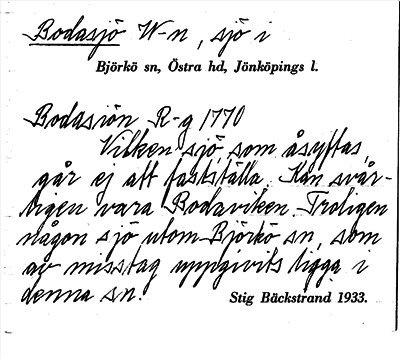 Bodasjö W-n, sjö i
Björkö sn, Östra hd, Jönköpings l.
Bodasiön R-g 1770
Vilken sjö, som åsyftas,
går ej att fastställa. Kan svår-
ligen vara Bodaviken. Troligen
någon sjö utom Björkö sn, som
av misstag uppgivits ligga i
denna sn.
Stig Bäckstrand 1933.